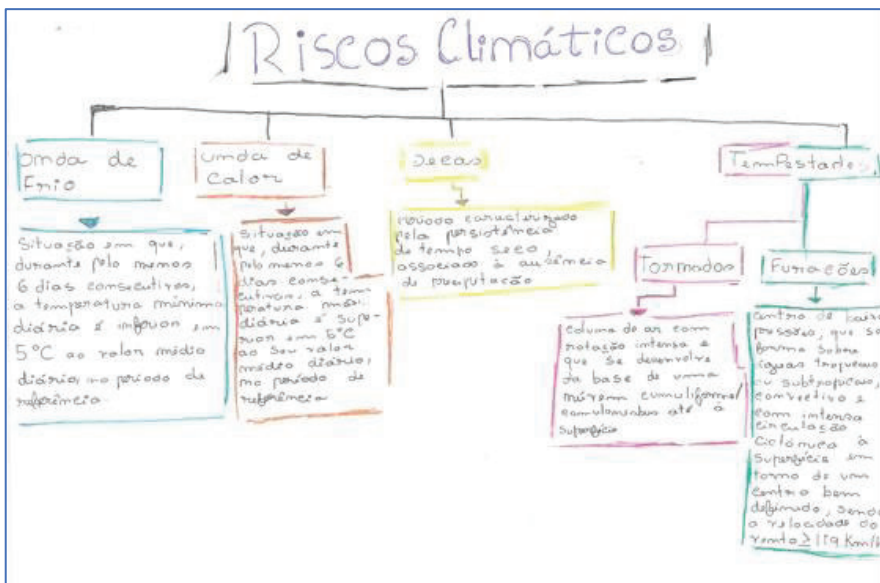 Riscos Climáticos
Onda de
Frio
Situação em que,
durante pelo menos
6 dias consecutivos,
a temperatura mínima
diária é inferior em
5°C ao valor médio
diário, no período de
referência
Onda de
Calor
Situação em
que, durante
pelo menos 6
dias conse-
cutivos, a tem
peratura máx.
diária é supe-
rior em 5°C
ao seu valor
médio diário,
no período de
referência
Secas
Período caracterizado
pela persistência
de tempo seco,
associado à ausência
de precipitação
Tempestades
Tornados
coluna de ar com
rotação intensa e
que se desenvolve
da base de uma
nuvem cumuliforme/
cumulonimbus até à
superfície
Furacões
centro de baixas
pressões, que se
forma sobre
águas tropicais
ou subtropicais,
convectivo e
com intensa
circulação
ciclónica à
superfície em
torno de um
centro bem
definido, sendo
a velocidade do
vento ≥ 119 Km/h